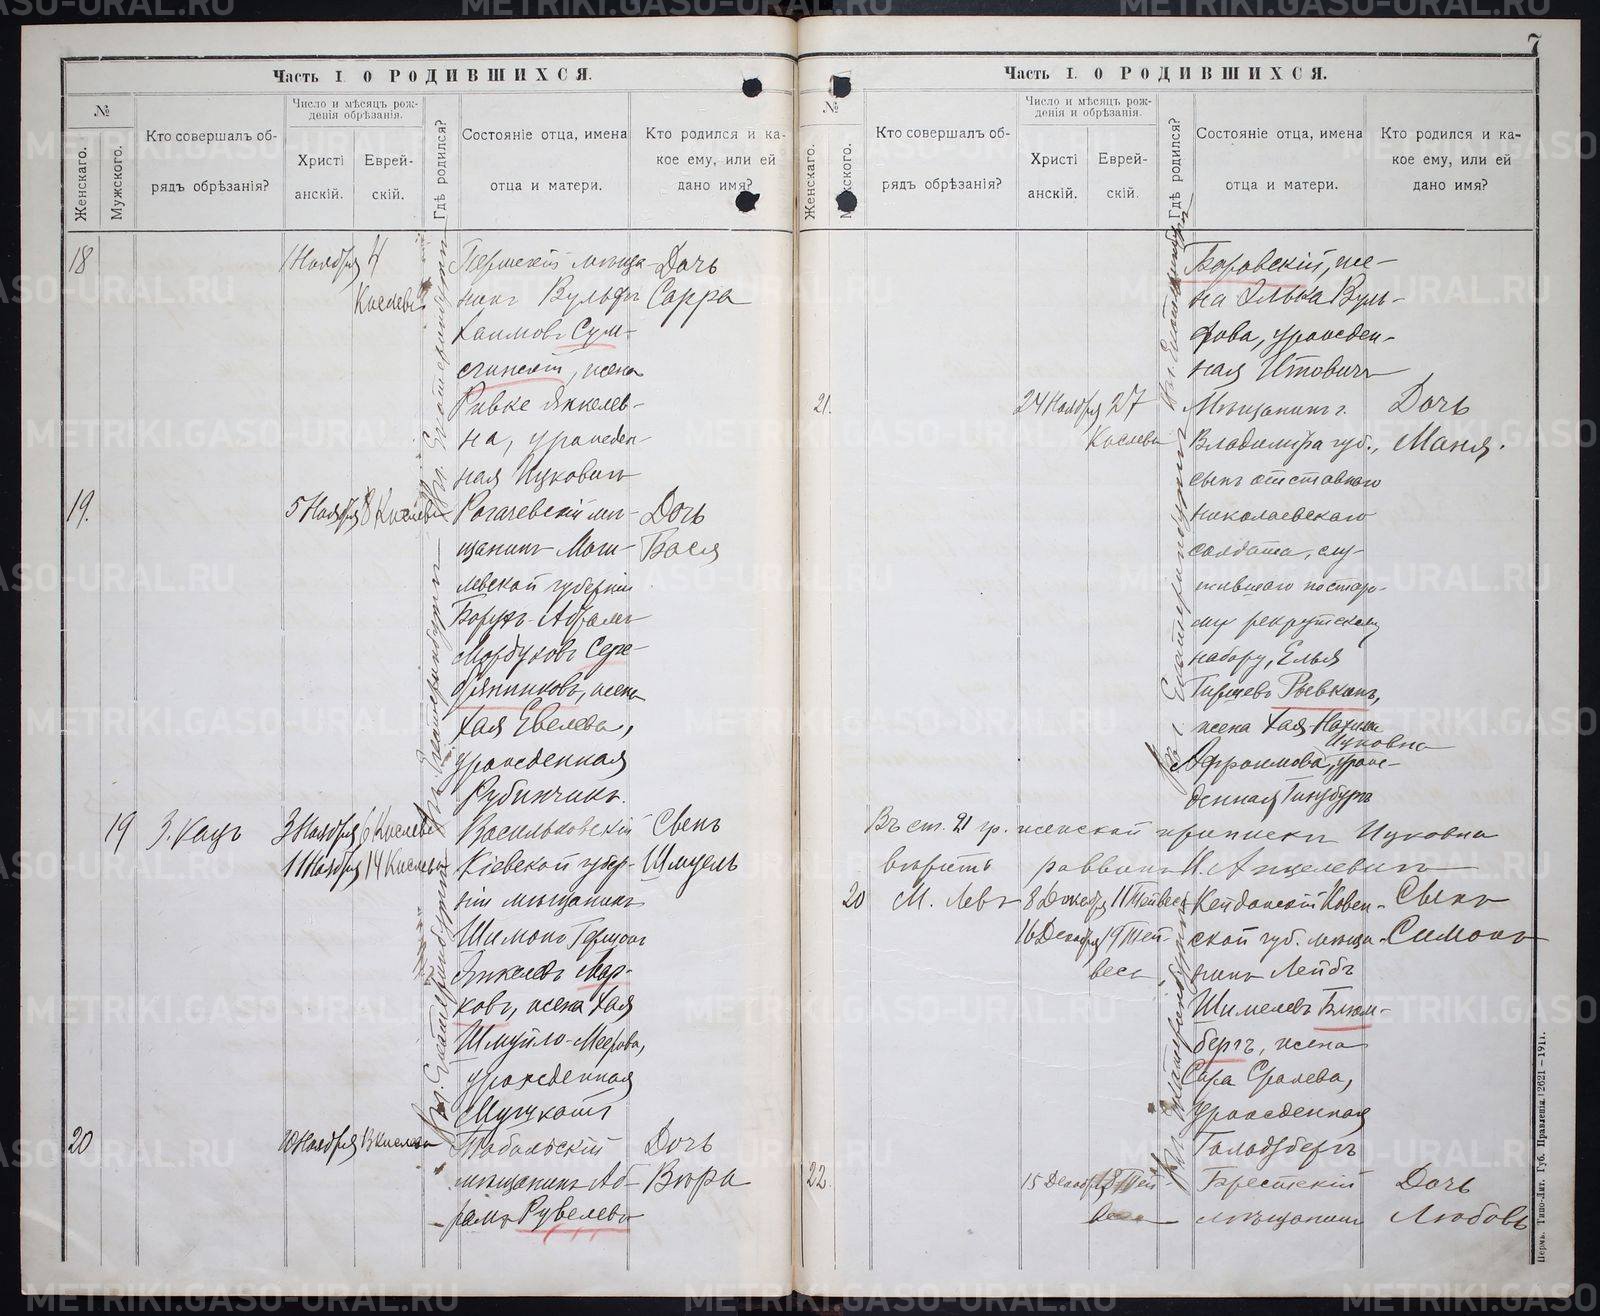 7
Часть I. О РОДИВШИХСЯ.
№
Женскаго.
Мужского.
Кто совершалъ об-
рядъ обрѣзанія?
Число и мѣсяцъ рож-
денія обрѣзанія.
Христі
анскій.
Еврей-
скій.
Гдѣ родился?
Состояніе отца, имена
отца и матери.
Кто родился и ка-
кое ему, или ей
дано имя?
18
1 Ноября
4
Кислева
Въ г. Екатеринбургѣ
Пермскій мѣща-
нинъ Вульфъ
Хаимовъ Сум-
жена
Ривке Янкелев-
на, урожден-
ная Ицковичъ
Дочь
Сарра
19.
5 Ноября
8 Кислева
Въ г. Екатеринбургѣ
Рогачевскій мѣ-
щанинъ Моги-
левской губерніи
Борухъ-Абрамъ
Мордуховъ Сере-
бряниковъ, жена
Хая Евелева,
урожденная
Рубинчикъ.
Дочь
Бася
19
З. Кацъ
3 Ноября
6 Кислева
11 Ноября
14 Кислева
Въ г. Екатеринбургѣ
Васильковскій
Кіевской губер-
ніи мѣщанинъ
Шимонъ Гершонъ
Янкелевъ Мар-
ковъ, жена Хая
Шмуйло-Меерова,
урожденная
Сынъ
Шмуель
20
10 Ноября
13 Кислева
Тобольскій
мѣщанинъ Аб-
рамъ Рувелевъ
Дочь
Вѣра
Часть I. О РОДИВШИХСЯ.
№
Женскаго.
Мужского.
Кто совершалъ об-
рядъ обрѣзанія?
Число и мѣсяцъ рож-
денія и обрѣзанія.
Христі
анскій.
Еврей-
скій.
Гдѣ родился?
Состояніе отца, имена
отца и матери.
Кто родился и ка-
кое ему, или ей
дано имя?
Въ г. Екатеринбургѣ
Боровскій, же-
на Элька Вуль-
фова, урожден-
ная Итовичъ
21.
24 Ноября
27
Кислева
Въ г. Екатеринбургѣ
Мѣщанинъ г.
Владиміра губ.,
сынъ отставного
николаевскаго
солдата, слу-
жившаго по старо-
му рекрутскому
набору, Елья
Гиршевъ Рывкинъ,
жена Хая
Ицковна
Афроимова, урож-
денная Гинзбургъ
Дочь
Маня.
Въ ст. 21 гр. женской приписки Ицковна
вѣрить раввинъ И. Анцелевичъ
20
М. Левъ
8 Декабря
11 Тейвесъ
16 Декабря
19 Тей-
весъ
Въ г. Екатеринбургѣ
Кейданскій Ковен-
ской губ. мѣща-
нинъ Лейбъ
Шимелевъ Блюм-
бергъ, жена
Сара Сролева,
урожденная
Гольдбергъ
Сынъ
Симонъ
22.
15 Декабря
18 Тей-
веса
Брестскій
мѣщанинъ
Дочь
Любовь
Пермь. Типо-Лит. Губ. Правленія 12621—1911.
METRIKI.GASO-URAL.RU